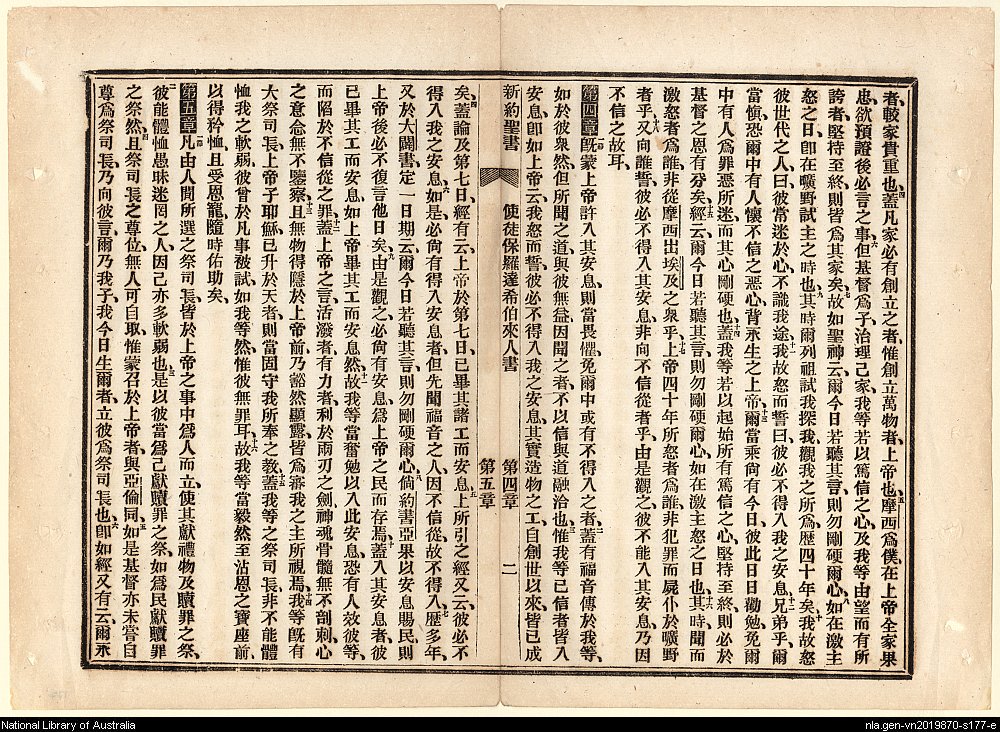 者、較家貴重也、四蓋凡家必有創立之者、惟創立萬物者、上帝也、五摩西爲僕、在上帝全家果
忠、欲預證後必言之事、六但基督爲子治理己家、我等若以篤信之心、及我等由望而有所
誇者、堅持至終、則皆爲其家矣、七故如聖神云、爾今日若聽其言、八則勿剛硬爾心、如在激主
怒之日、卽在曠野試主之時也、九其時爾列祖試我、探我、觀我之所爲、歷四十年矣、十我故怒
彼世代之人曰、彼常迷於心、不識我途、十一我故怒而誓曰、彼必不得入我之安息、十二兄弟乎、爾
當愼、恐爾中有人懷不信之惡心、背永生之上帝、十三爾當乘尙有今日、彼此日日勸勉、免爾
中有人爲罪惡所迷、而其心剛硬也、十四蓋我等若以起始所有篤信之心、堅持至終、則必於
基督之恩有分矣、十五經云、爾今日若聽其言、則勿剛硬爾心、如在激主怒之日也、十六其時聞而
激怒者爲誰、非從摩西出埃及之衆乎、十七上帝四十年所怒者爲誰、非犯罪而屍仆於曠野
者乎、十八又向誰誓、彼必不得入其安息、非向不信從者乎、十九由是觀之、彼不能入其安息、乃因
不信之故耳、
第四章 一節旣蒙上帝許入其安息、則當畏懼、免爾中或有不得入之者、二蓋有福音傳於我等、
如於彼衆然、但所聞之道、與彼無益、因聞之者、不以信與道融洽也、三惟我等已信者、皆入
安息、卽如上帝云、我怒而誓、彼必不得入我之安息、其實造物之工、自創世以來、皆已成
新約聖書 使徒保羅達希伯來人書 第四章 第五章 二
矣、四蓋論及第七日、經有云、上帝於第七日已畢其諸工而安息、五上所引之經又云、彼必不
得入我之安息、六如是、必尙有得入安息者、但先聞福音之人、因不信從、故不得入、七歷多年、
又於大闢書、定一日期云、爾今日若聽其言、則勿剛硬爾心、八倘約書亞果以安息賜民、則
上帝後必不復言他日矣、九由是觀之、必尙有安息爲上帝之民而存焉、十蓋入其安息者、彼
已畢其工而安息、如上帝畢其工而安息然、十一故我等當奮勉以入此安息、恐有人效彼等、
而陷於不信從之罪、十二蓋上帝之言、活潑者、有力者、利於兩刃之劍、神魂骨髓無不剖刺、心
之意念無不鑒察、十三且無物得隱於上帝前、乃豁然顯露、皆爲審我之主所視焉、十四我等旣有
大祭司長、上帝子耶穌、已升於天者、則當固守我所奉之敎、十五蓋我等之祭司長、非不能體
恤我之軟弱、彼曾於凡事被試如我等然、惟彼無罪耳、十六故我等當毅然至沾恩之寶座前、
以得矜恤、且受恩寵、隨時佑助矣、
第五章 一節凡由人間所選之祭司長、皆於上帝之事中、爲人而立、使其獻禮物及贖罪之祭、
二彼能體恤愚昧迷罔之人、因己亦多軟弱也、三是以彼當爲己獻贖罪之祭、如爲民獻贖罪
之祭然、四且祭司長之尊位、無人可自取、惟蒙召於上帝者、與亞倫同、五如是基督亦未嘗自
尊爲祭司長、乃向彼言、爾乃我子、我今日生爾者、立彼爲祭司長也、六卽如經又有云、爾永
National Library of Australia
nla.gen-vn2019870-s177-e